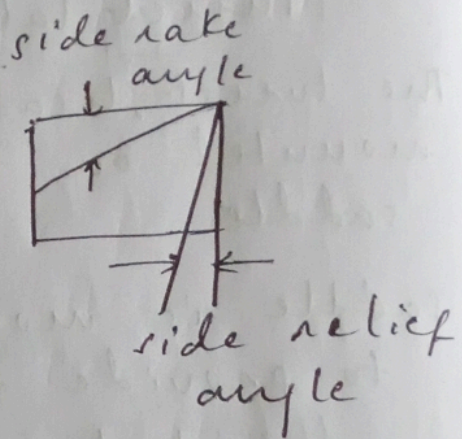 side rake
angle
side relief
angle